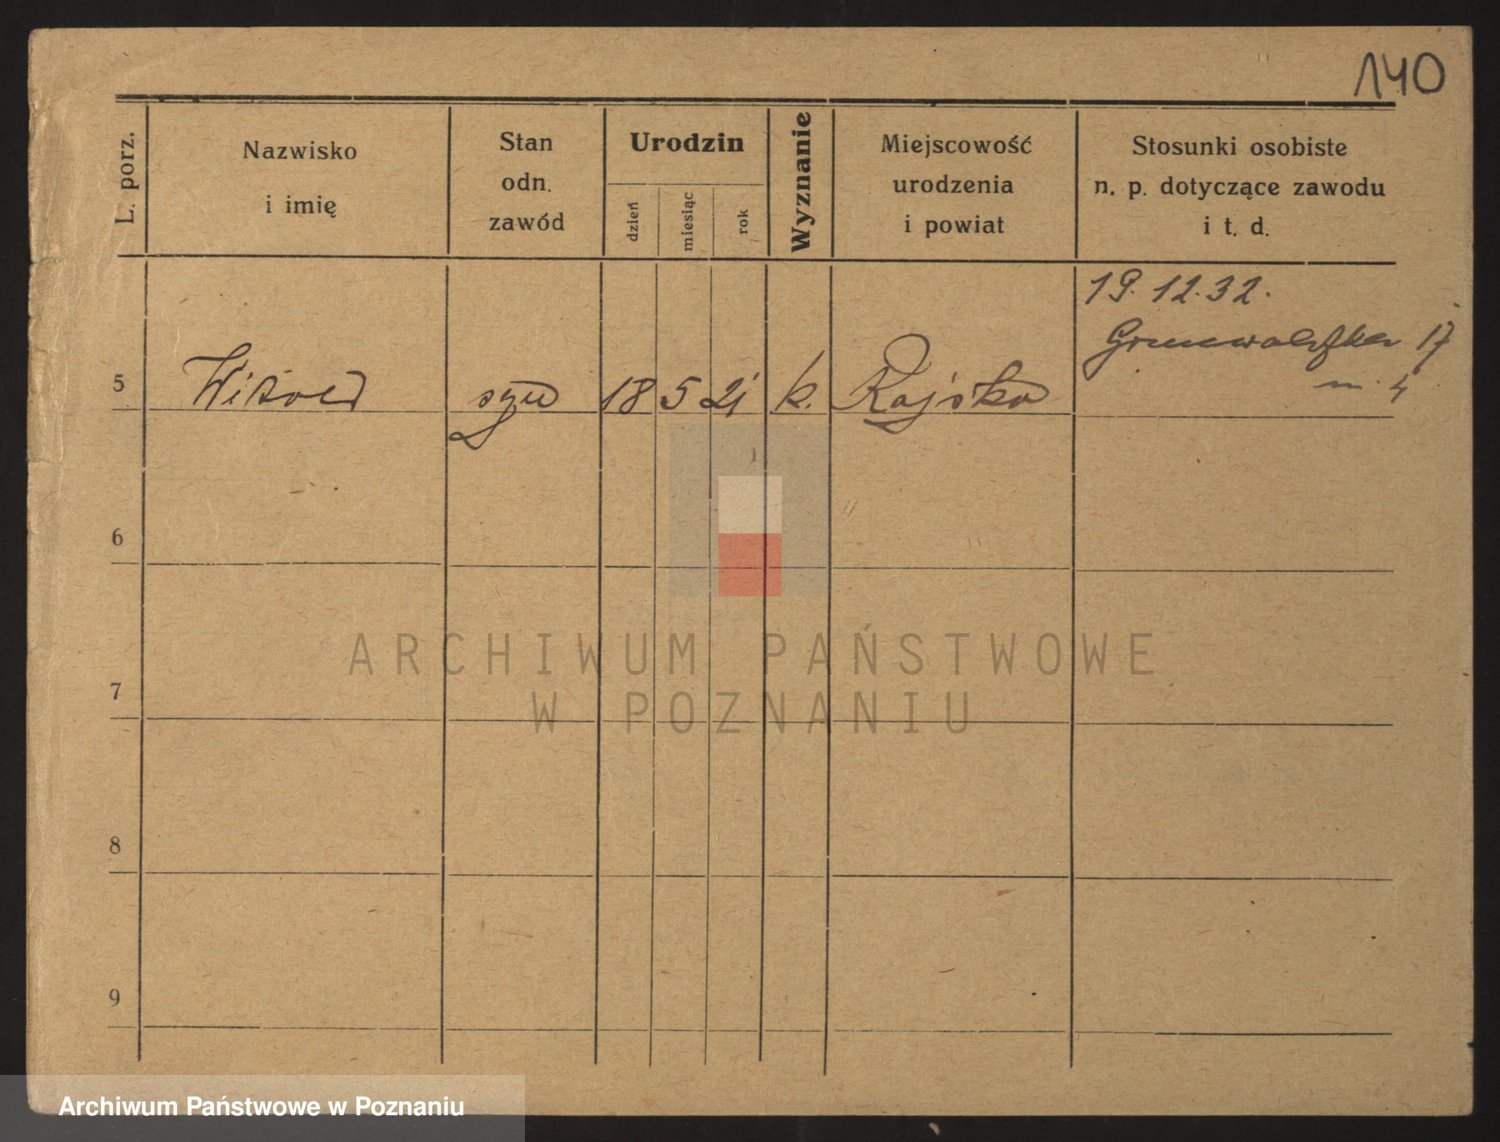 140
L. porz.
Nazwisko
i imię
Stan
odn.
zawód
Urodzin
dzień
miesiąc
rok
Wyznanie
Miejscowość
urodzenia
i powiat
Stosunki osobiste
n. p. dotyczące zawodu
i t. d.
19.12.32.
17
m. 4
5 Witold syn 18 5 21 k. Rajsko
6
7
8
9
ARCHIWUM PAŃSTWOWE
W POZNANIU
Archiwum Państwowe w Poznaniu